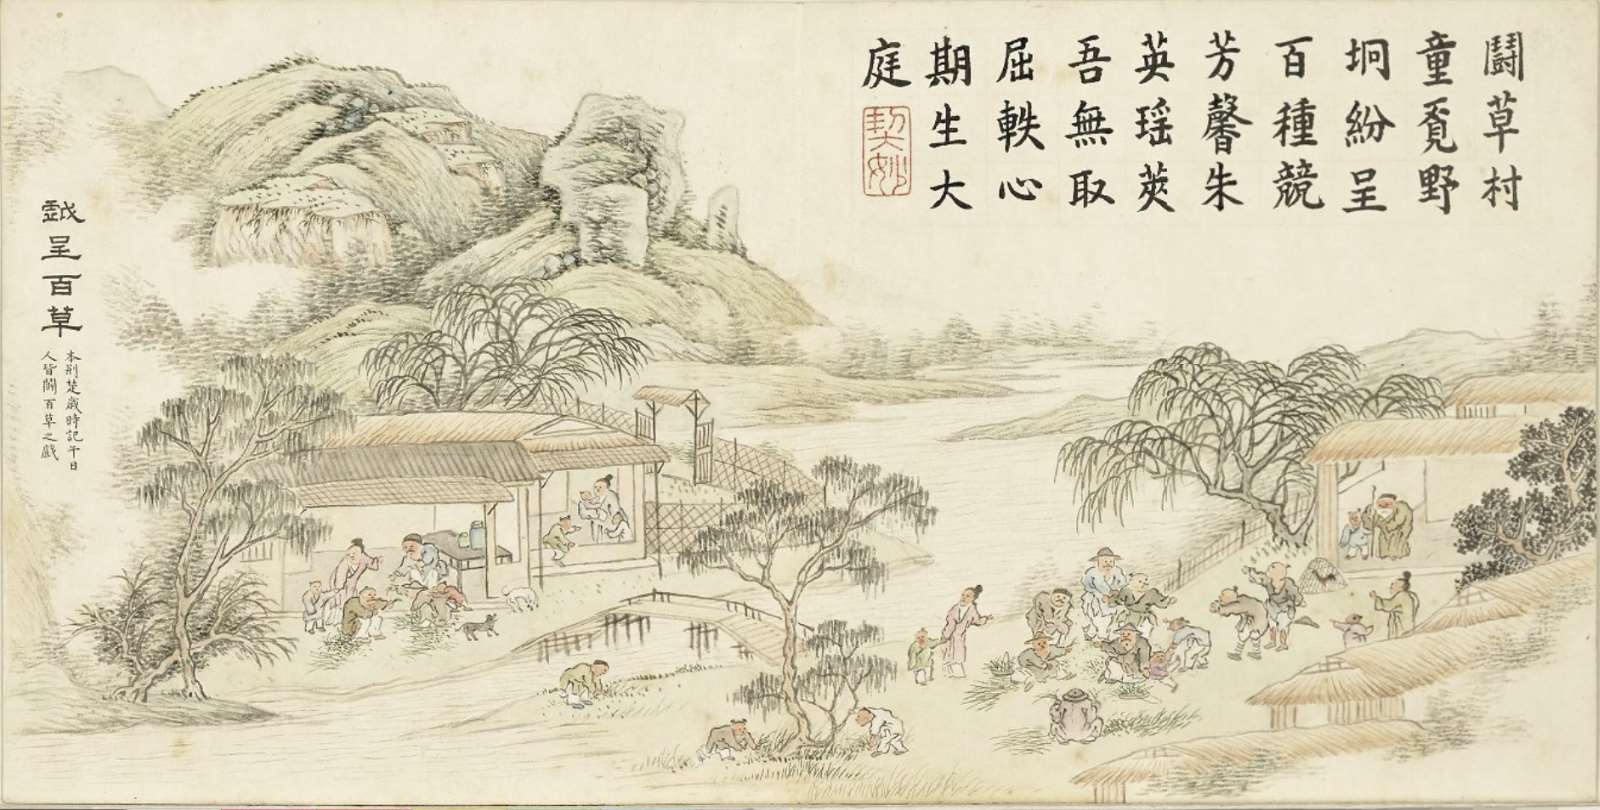 鬭草村
童覔野
坰紛呈
百種競
芳馨朱
英瑶莢
吾無取
屈軼心
期生大
庭
契妙
戲呈百草
本荆楚歲時記午日
人皆鬭百草之戲